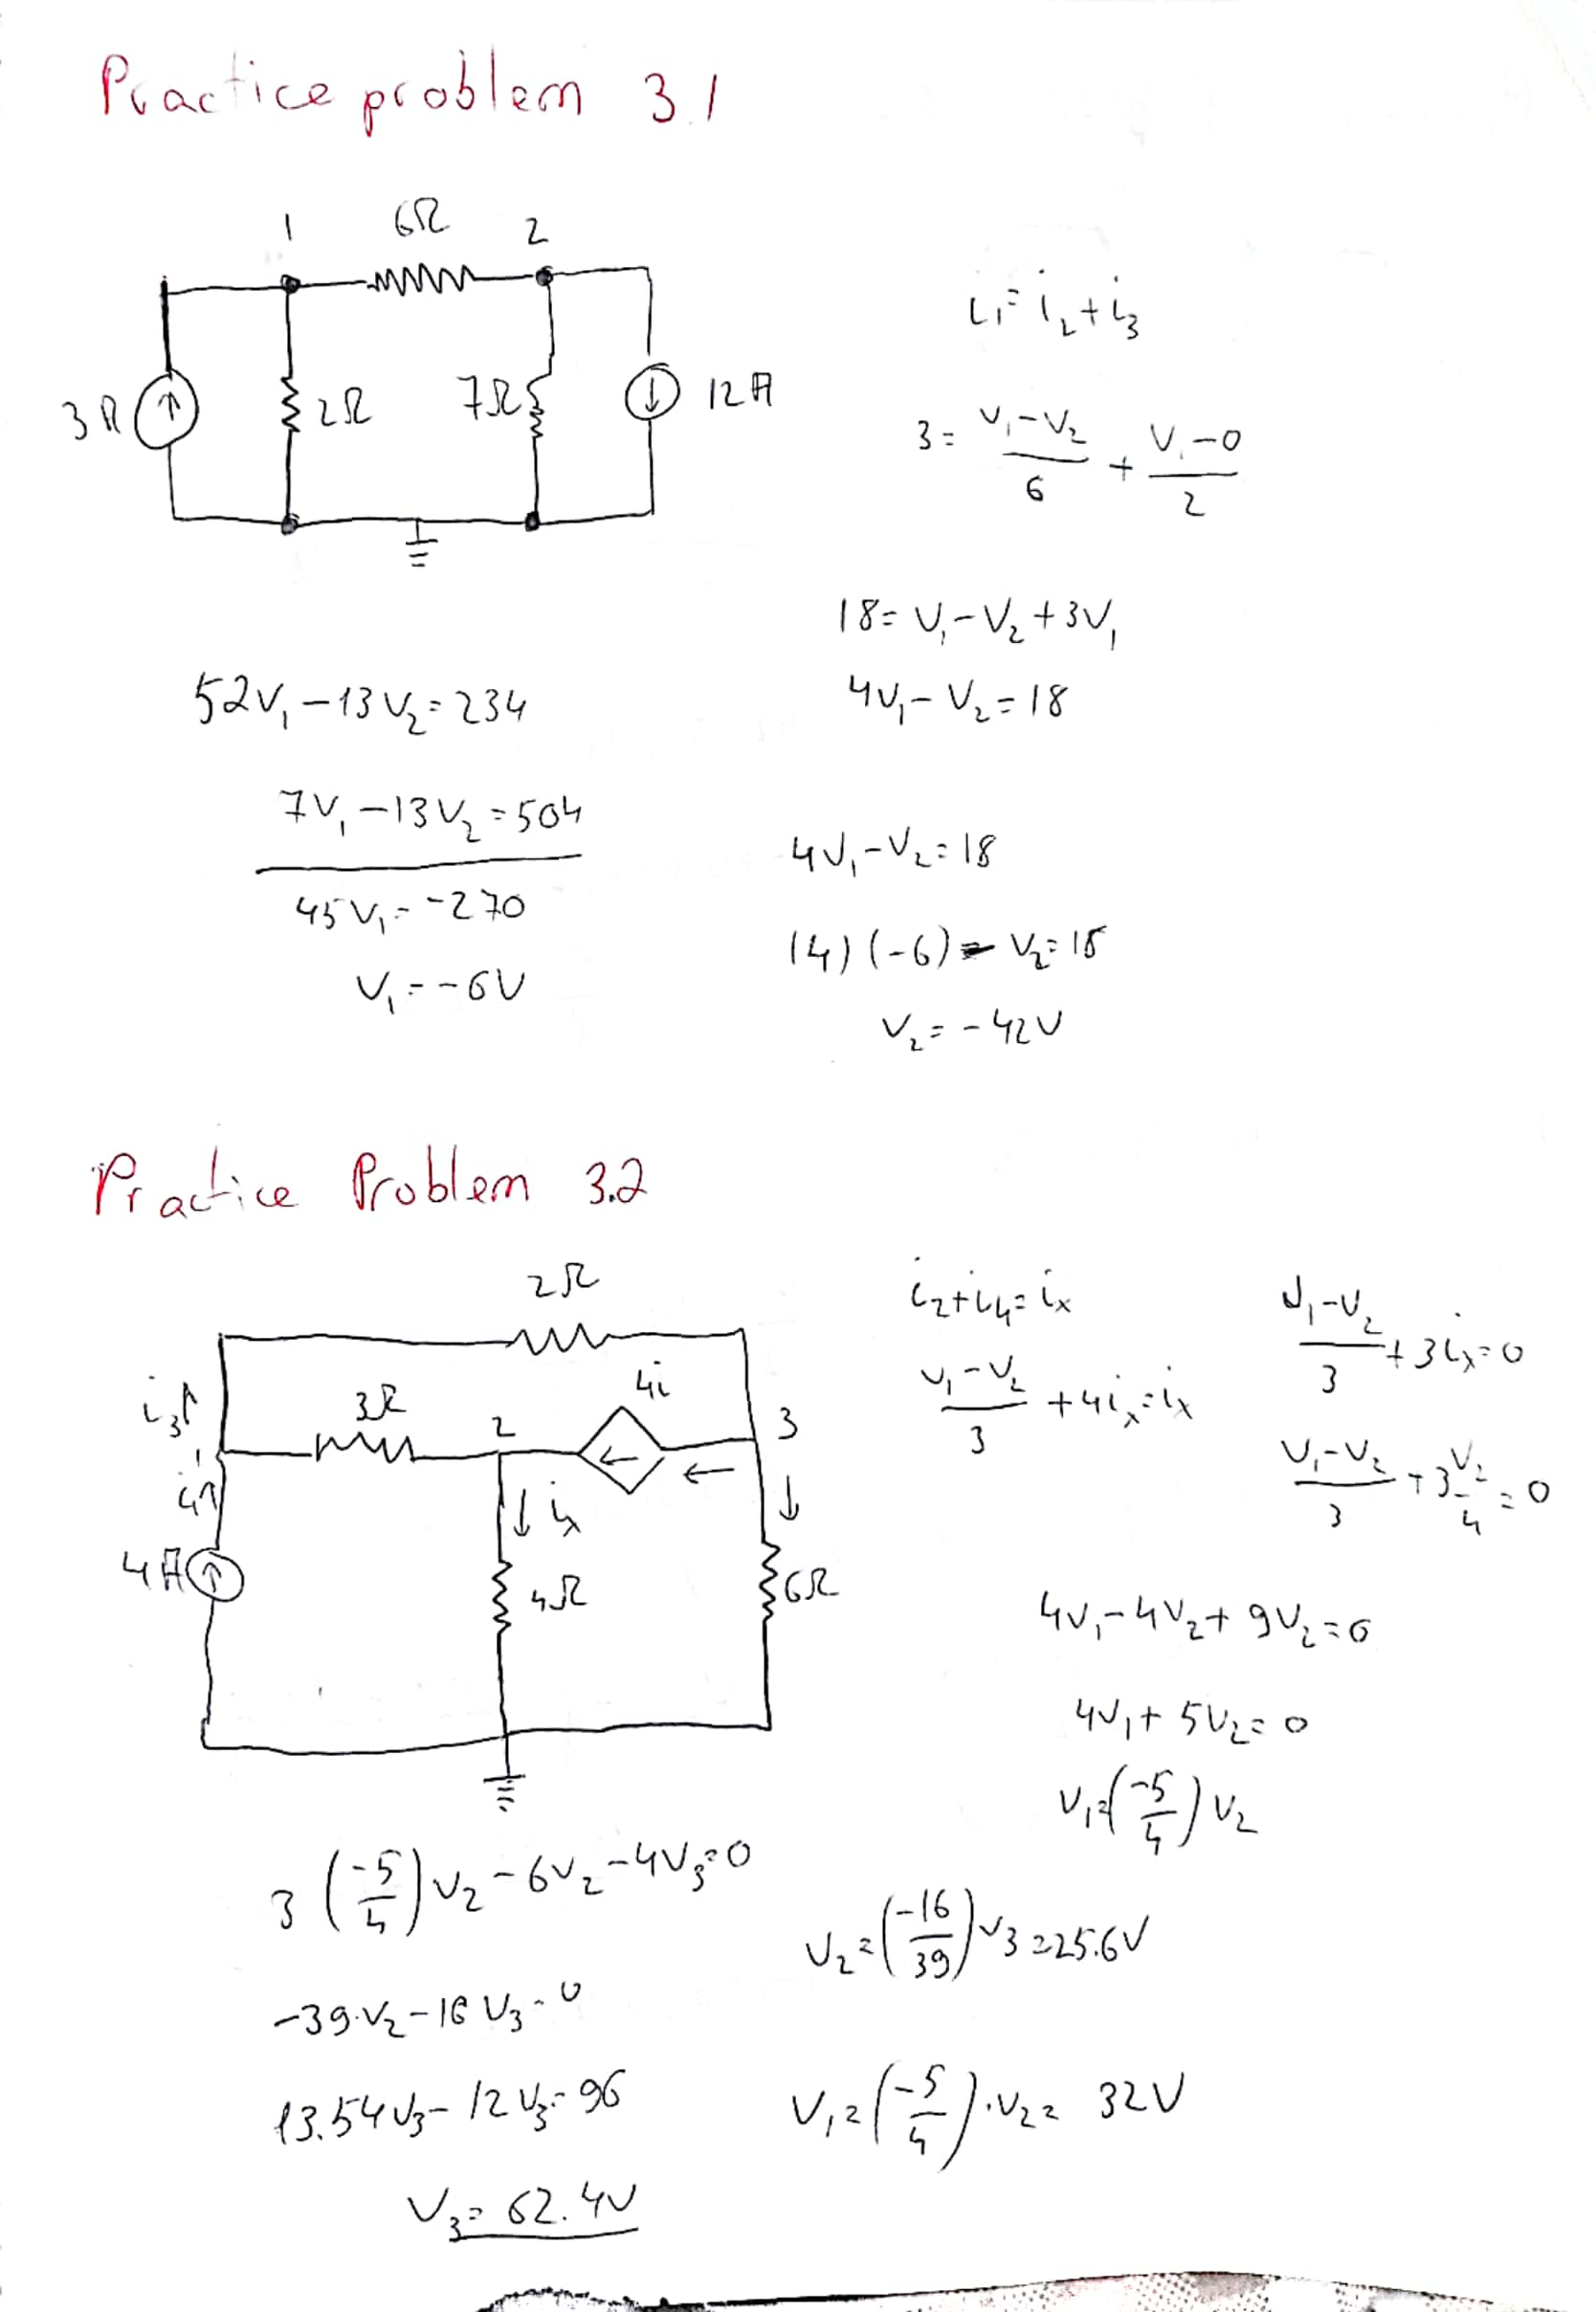 Practice problem 3.1
1 6Ω 2
3A 2Ω 7Ω 12A
i₁ = i₂ + i₃
3 = (V₁ - V₂)/6 + (V₁ - 0)/2
18 = V₁ - V₂ + 3V₁
4V₁ - V₂ = 18
52V₁ - 13V₂ = 234
7V₁ - 13V₂ = 504
45V₁ = -270
V₁ = -6V
4V₁ - V₂ = 18
(4)(-6) - V₂ = 18
V₂ = -42V
Practice Problem 3.2
2Ω
i₃ 3Ω 2 4i 3
1
4A iₓ
4Ω 6Ω
i₂ + i₄ = iₓ
(V₁ - V₂)/3 + 4iₓ = iₓ
(V₁ - V₂)/3 + 3iₓ = 0
(V₁ - V₂)/3 + 3 V₂/4 = 0
4V₁ - 4V₂ + 9V₂ = 0
4V₁ + 5V₂ = 0
V₁ = (-5/4) V₂
3 (-5/4) V₂ - 6V₂ - 4V₃ = 0
-39·V₂ - 16V₃ = 0
13.54V₃ - 12V₃ = 96
V₃ = 62.4V
V₂ = (-16/39) V₃ = 25.6V
V₁ = (-5/4)·V₂ = 32V